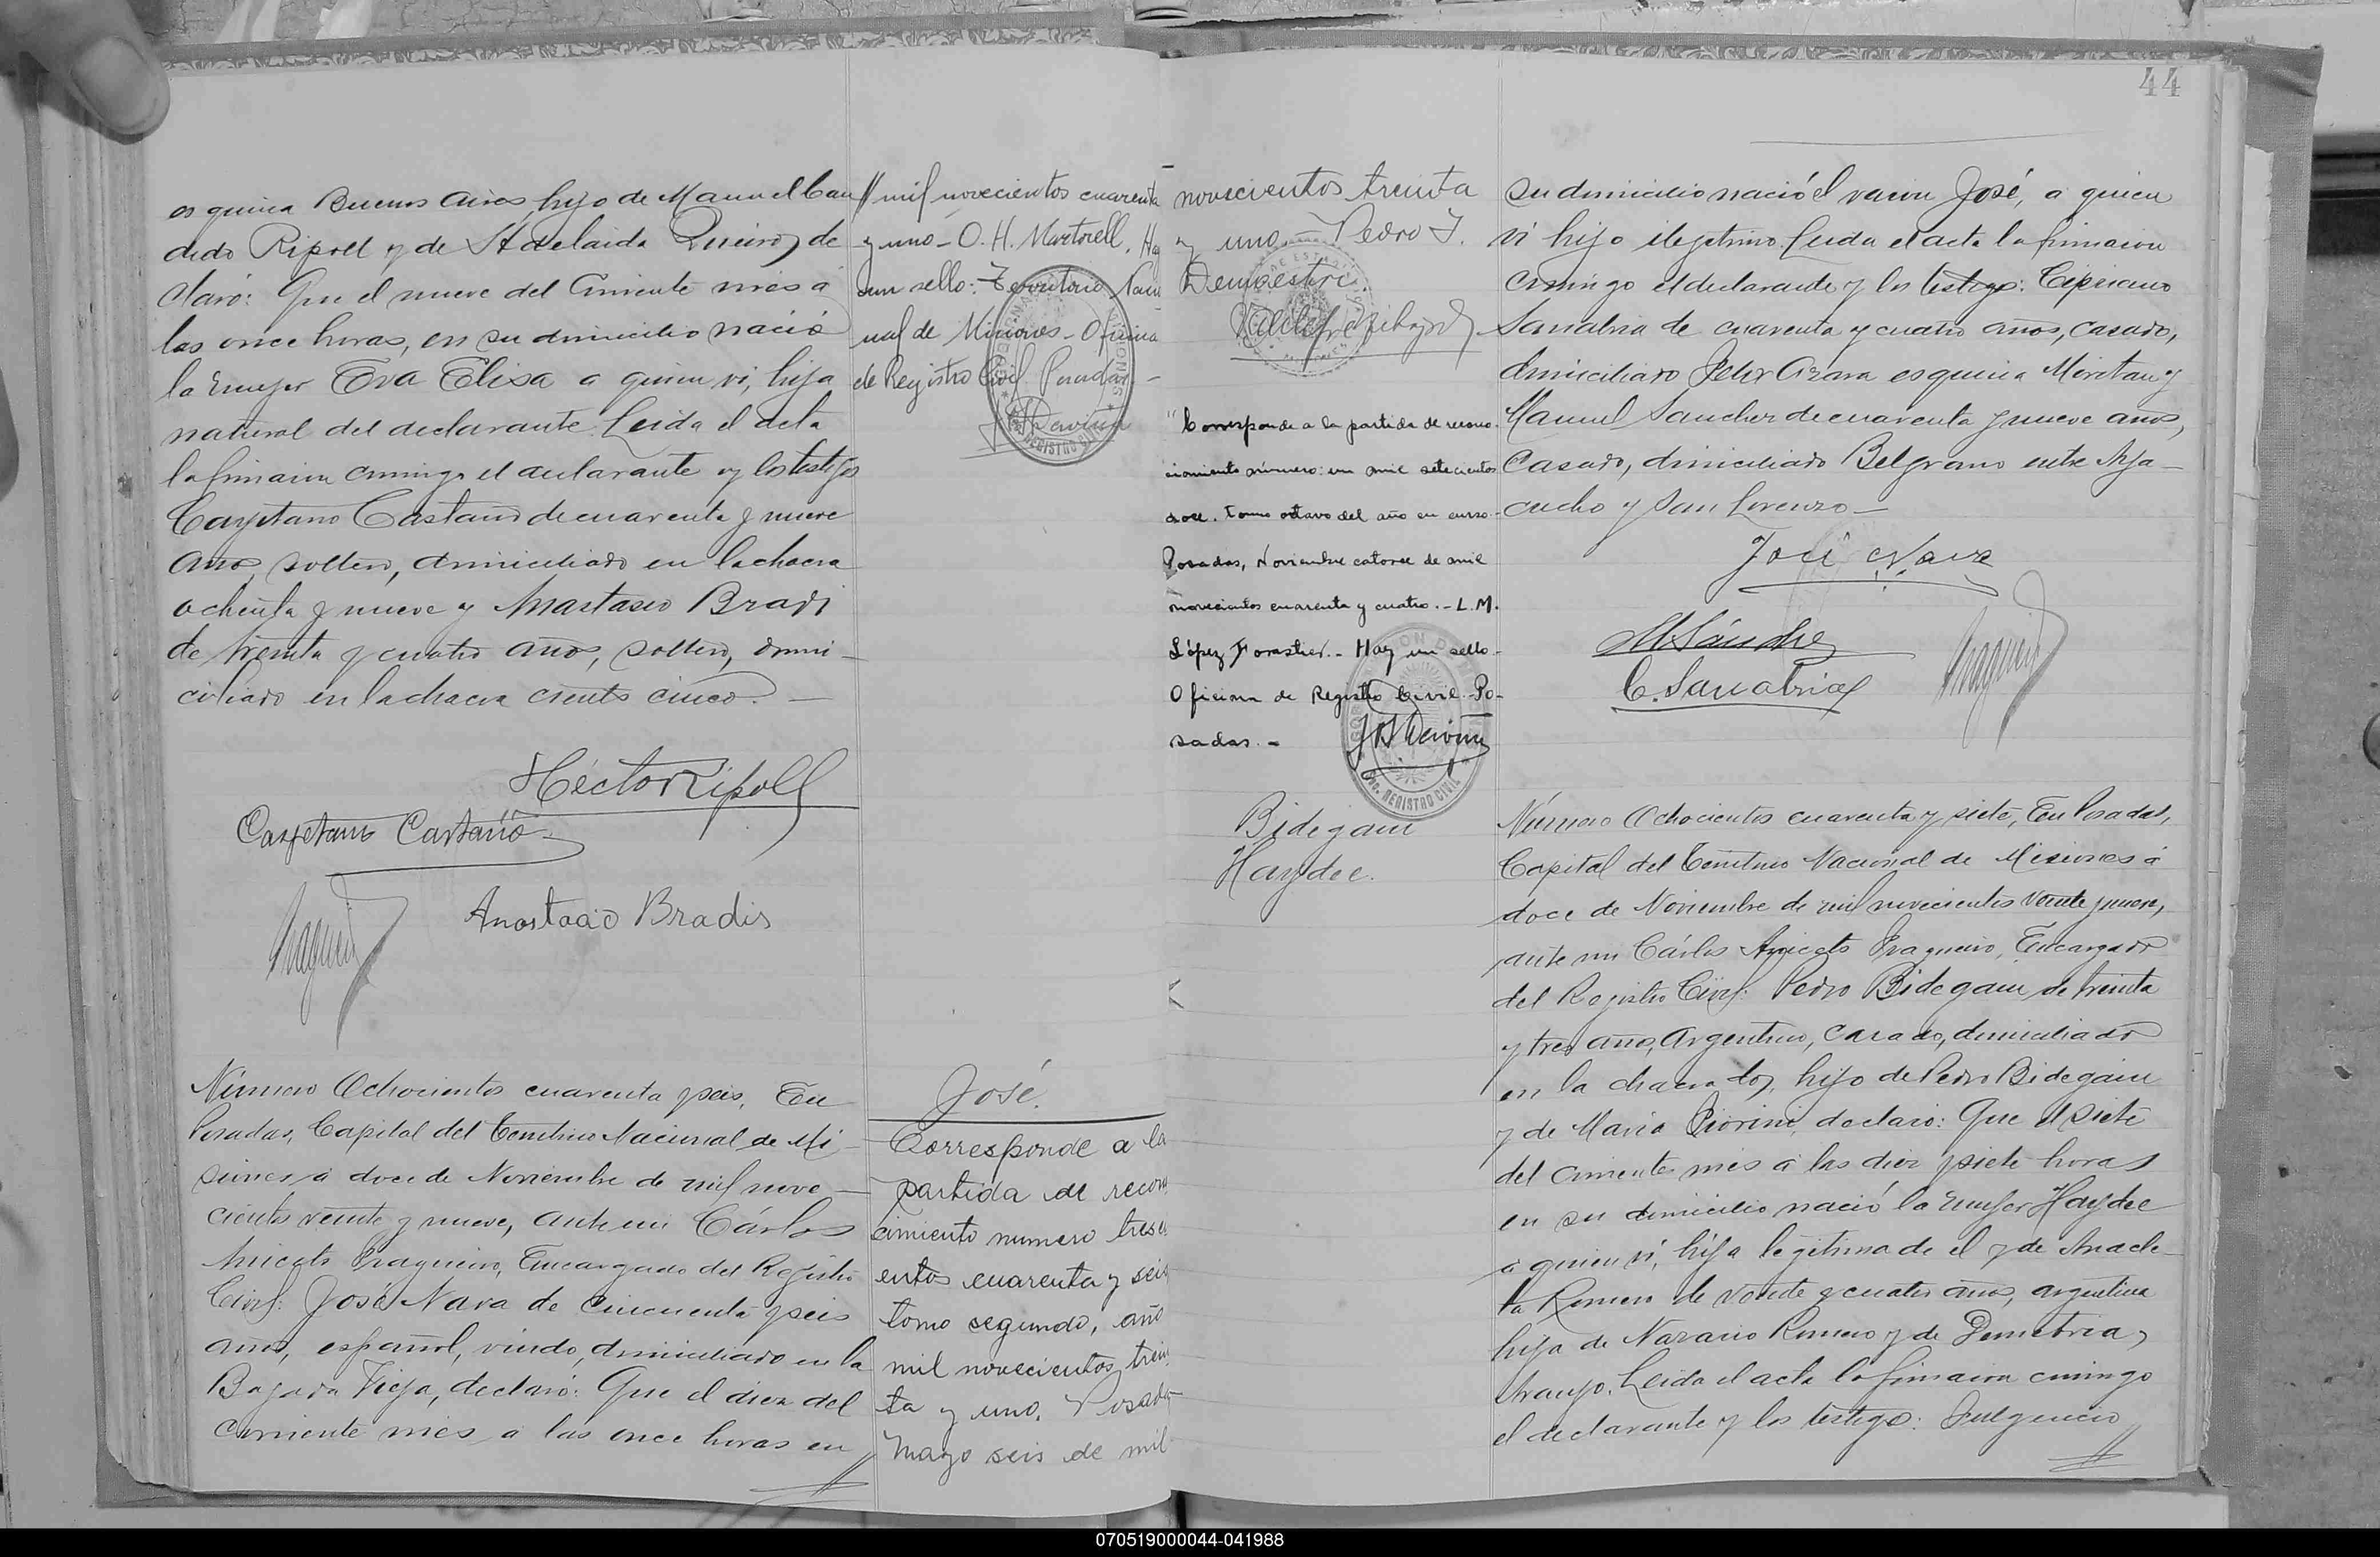 esquina Buenos Aires, hijo de Manuel Can
dido Ripoll y de Adelaida Queiroz, de
claró: Que el nueve del corriente mes á
las once horas, en su domicilio nació
la mujer Eva Elisa a quien vi, hija
natural del declarante. Leida el acta
la firmaron conmigo el declarante y los testigos
Cayetano Castaño de cuarenta y nueve
años, soltero, domiciliado en la chacra
ochenta y nueve y Anastacio Bradi
de treinta y cuatro años, soltero, domi-
ciliado en la chacra ciento cinco.—
Héctor Ripoll
Cayetano Castaño
Anastacio Bradis
// mil novecientos cuarenta
y uno - O. H. Martorell. Ha
un sello: Territorio Naci
nal de Misiones - Oficina
de Registro Civil Posadas -
REGISTRO CIVIL
Número Ochocientos cuarenta y seis, En
Posadas, Capital del Territorio Nacional de Mi-
siones a doce de Noviembre de mil nove-
cientos veinte y nueve, ante mi Cárlos
Aniceto Fragueiro, Encargado del Registro
Civil: José Nava de cincuenta y seis
años, español, viudo, domiciliado en la
Bajada Vieja, declaró: Que el diez del
corriente mes, a las once horas en //
José.
Corresponde a la
partida de recono
cimiento numero tresci
entos cuarenta y seis
tomo segundo, año
mil novecientos trein
ta y uno. Posadas
Mayo seis de mil
44
novecientos treinta
y uno - Pedro J.
Demaestri.
"Corresponde a la partida de recono-
cimiento número: un mil setecientos
doce. Tomo octavo del año en curso.-
Posadas, Noviembre catorce de mil
novecientos cuarenta y cuatro.- L.M.
López Forastier.- Hay un sello-
Oficina de Registro Civil-Po-
sadas.-
REGISTRO CIVIL
su domicilio nació el varon José, a quien
vi hijo ilegitimo. Leida el acta la firmaron
conmigo el declarante y los testigos: Cipriano
Sanabria de cuarenta y cuatro años, casado,
domiciliado Felix Azara esquina Moritan y
Manuel Sanchez de cuarenta y nueve años,
casado, domiciliado Belgrano entre Aya-
cucho y San Lorenzo—
José Nava
M Sánchez
C. Sanabria
Bidegain
Haydee.
Número Ochocientos cuarenta y siete, En Posadas,
Capital del Territorio Nacional de Misiones á
doce de Noviembre de mil novecientos veinte y nueve,
ante mi Cárlos Aniceto Fragueiro, Encargado
del Registro Civil: Pedro Bidegain de treinta
y tres años, argentino, casado, domiciliado
en la chacra dos, hijo de Pedro Bidegain
y de Maria Fiorini, declaró: Que el siete
del corriente mes á las diez y siete horas
en su domicilio nació la mujer Haydee
a quien vi, hija legitima de el y de Anacle-
ta Romero de veinte y cuatro años, argentina
hija de Nazario Romero y de Demetria
Araujo. Leida el acta la firmaron conmigo
el declarante y los testigos: Fulgencio //
070519000044-041988